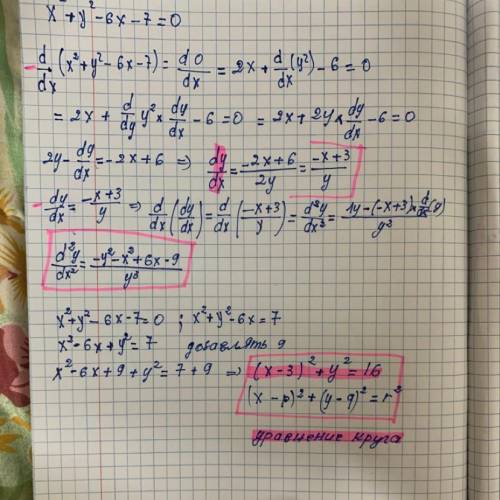 x² + y² - 6x - 7 = 0
- d/dx (x² + y² - 6x - 7) = d0/dx = 2x + d/dx (y²) - 6 = 0
= 2x + d/dy y² × dy/dx - 6 = 0 = 2x + 2y × dy/dx - 6 = 0
2y - dy/dx = -2x + 6 ⇒ dy/dx = -2x+6/2y = -x+3/y
- dy/dx = -x+3/y ⇒ d/dx (dy/dx) = d/dx (-x+3/y) = d²y/dx² = 1y-(-x+3) × d/dx (y)/y²
d²y/dx² = -y²-x²+6x-9/y³
x² + y² - 6x - 7 = 0 ; x² + y² - 6x = 7
x² - 6x + y² = 7 добавлять 9
x² - 6x + 9 + y² = 7 + 9 ⇒ (x - 3)² + y² = 16
(x - p)² + (y - q)² = r²
уравнение круга